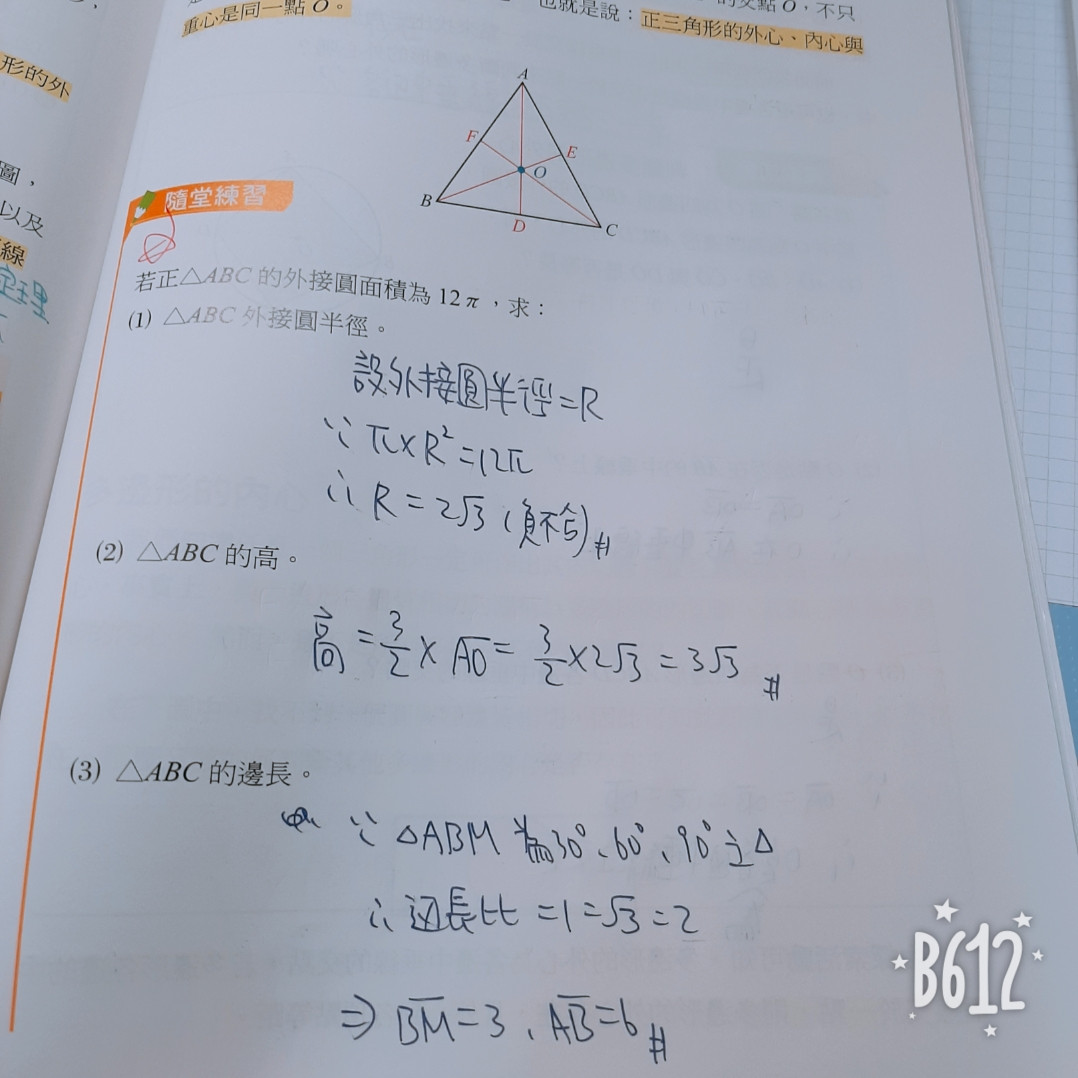 的交點 O,不只
也就是說:正三角形的外心、內心與
重心是同一點 O。
形的外
圖,
以及
線
定理
A
F
E
O
B
D
C
隨堂練習
若正△ABC 的外接圓面積為 12π,求:
(1) △ABC 外接圓半徑。
設外接圓半徑=R
∵ π×R²=12π
∴ R=2√3 (負不合)#
(2) △ABC 的高。
高=3/2×AO=3/2×2√3=3√3 #
(3) △ABC 的邊長。
∵ △ABM 為30°、60°、90°之△
∴ 边長比=1=√3=2
⇒ BM=3、AB=6 #
B612